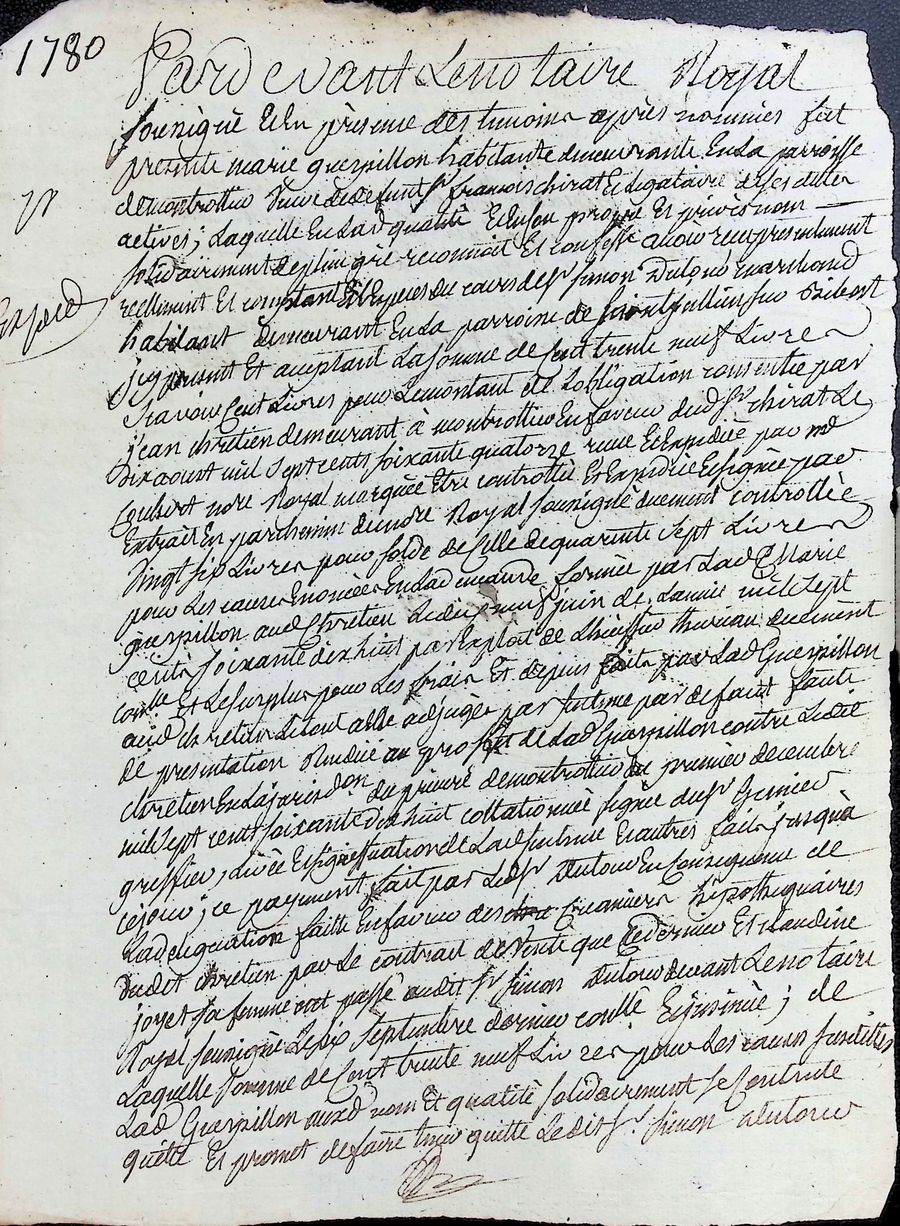 1780
Pardevant Le notaire Royal
soussigné Et En présence des temoins après nommés fut
presente marie guerpillon habitante demeurante En La parroisse
de montrottier veuve de defunt Sr francois chirat Et legataire de ses dettes
actives ; Laquelle En Lad qualité Et En son propre Et privé nom
solidairement de plein gré reconnoit Et confesse avoir recu presentement
reellement Et comptant En Especes du cours de Sr Simon Dutour marchand
habitant demeurant En La parroisse de Saint jullien sur Bibost
icy present Et acceptant La somme de Cent trente neuf Livres
Scavoir Cent Livres pour Le montant de L'obligation consentie par
jean chretien demeurant à montrottier En faveur dud Sr chirat Le
Dix aout mil sept cents soixante quatorze recue Et Expediée par me
Coubert nore Royal marquée Etre controllée Et Expediée Et signée par
Extrait En parchemin de nore Royal soussigné duement controllée
Vingt six Livres pour solde de Celle de quarente sept Livres
pour Les causes Enoncées En Lad demande formée par Lad Marie
guerpillon aud Chretien Le dix neuf juin de L'année mil sept
cents soixante dix huit par Exploit de L'huissier thivian duement
conllé Et Le surplus pour Les frais Et depens faits par Lad Guerpillon
aud chretien Le tout a elle adjugés par sentence par defaut faute
de presentation Rendue au proffit de Lad Guerpillon contre Ledit
Chretien En La jurisdon du prieuré de montrottier du premier decembre
mil sept cent soixante dix huit collationnée signée du Sr Grenier
greffier, scelée Et signiffication de Lad sentence Et autres faits jusqu'à
ce jour ; ce payement fait par Led Sr Dutour En Consequence de
La delegation faitte En faveur des Creanciers hipothequaires
dudit chretien par Le contrat de Vente que Ce dernier Et claudine
joyet sa femme ont passé audit Sr Simon Dutour devant Le notaire
Royal soussigné Le six Septembre dernier conllé Et insinué ; de
Laquelle somme de Cent trente neuf Livres pour Les causes susdittes
Lad Guerpillon auxd nom Et qualité solidairement se Contente
quitte Et promet de faire tenir quitte Ledit Sr Simon Dutour